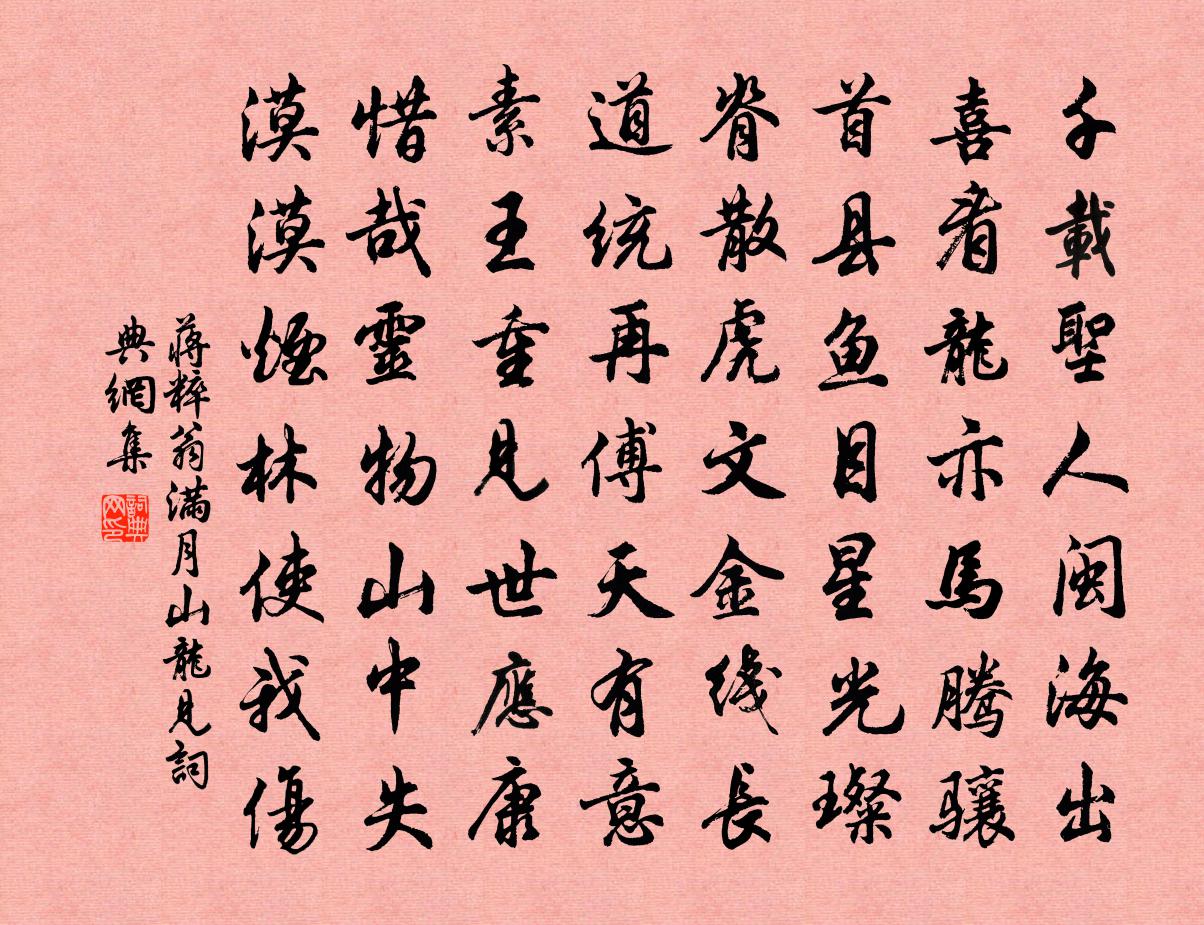 千載聖人閩海出
喜看龍亦馬騰骧
首县魚目星光璨
脊散虎文金线長
道統再傅天有意
素王重見世應康
惜哉靈物山中失
漠漠煙林使我傷
蔣粹翁滿月山龍見詞
典網集
詞典
网印